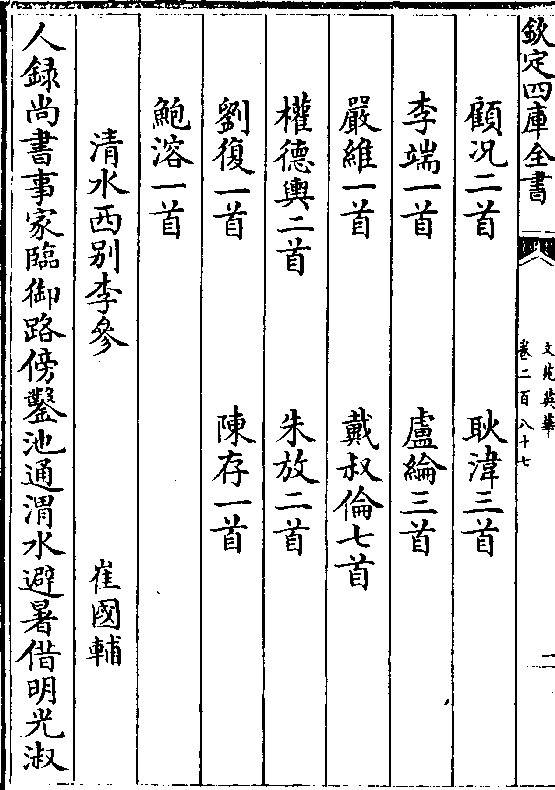 欽定四庫全書
文苑英華
卷二百八十七
二
顧况二首
耿湋三首
李端一首
盧綸三首
嚴維一首
戴叔倫七首
權德輿二首
朱放二首
劉復一首
陳存一首
鮑溶一首
清水西别李參
崔國輔
人録尚書事家臨御路傍鑿池通渭水避暑借明光淑